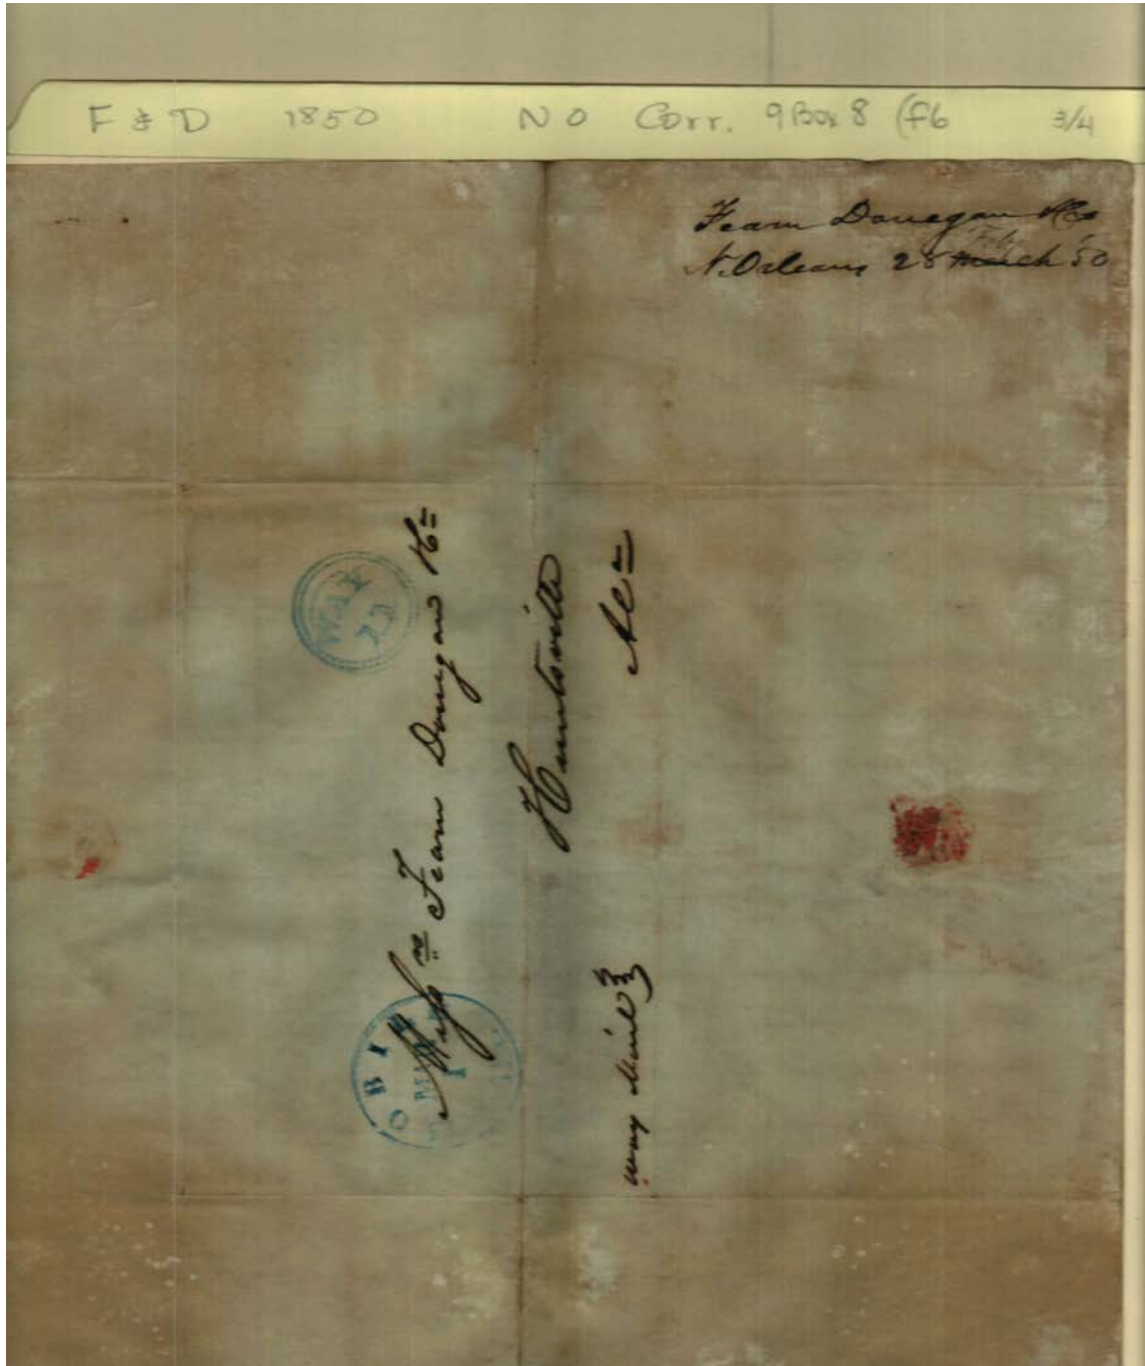 F & D 1850 NO Corr. 9 Box 8 (f6 3/4
Fearn Donegan & Co
Feby
N. Orleans 28 March '50
WAY
11
Messrs Fearn Donegan & Co
Huntsville
Ala
Way Mail
OBI
MAR
1